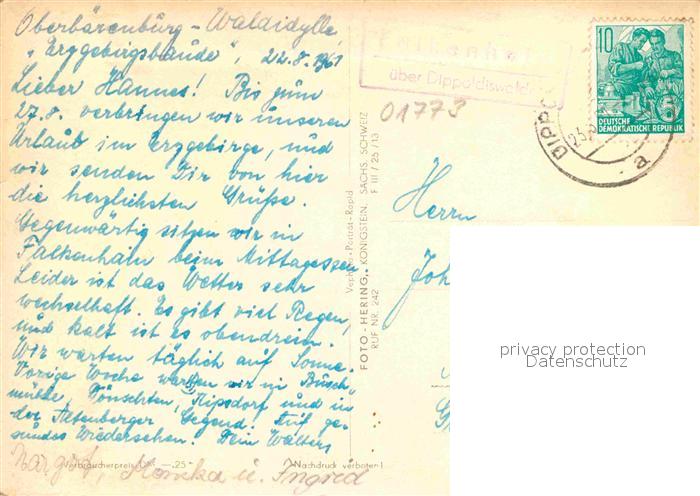 Oberbärenburg - Waldidylle,
"Erzgebirgsbaude", 22.8.1961
Lieber Hannes! Bis zum
27.8. verbringen wir unseren
Urlaub im Erzgebirge, und
wir senden Dir von hier
die herzlichsten Grüße.
Gegenwärtig sitzen wir in
Falkenhain beim Mittagessen
Leider ist das Wetter sehr
wechselhaft. Es gibt viel Regen,
und kalt ist es obendrein.
Wir warten täglich auf Sonne.
Vorige Woche waren wir in Büsch
mühle, Dönschten, Kipsdorf und in
der Altenberger Gegend. Auf ge-
sundes Wiedersehen! Dein Walter,
Margot, Monika u. Ingrid
Verbraucherpreis DM —.25
Nachdruck verboten!
Falkenhain
über Dippoldiswalde
01773
10
DEUTSCHE
DEMOKRATISCHE REPUBLIK
5
DIPPO
23.
a
Herrn
Joh
FOTO-HERING, KÖNIGSTEIN, SÄCHS. SCHWEIZ
RUF NR. 242 F III / 25 / 13
privacy protection
Datenschutz